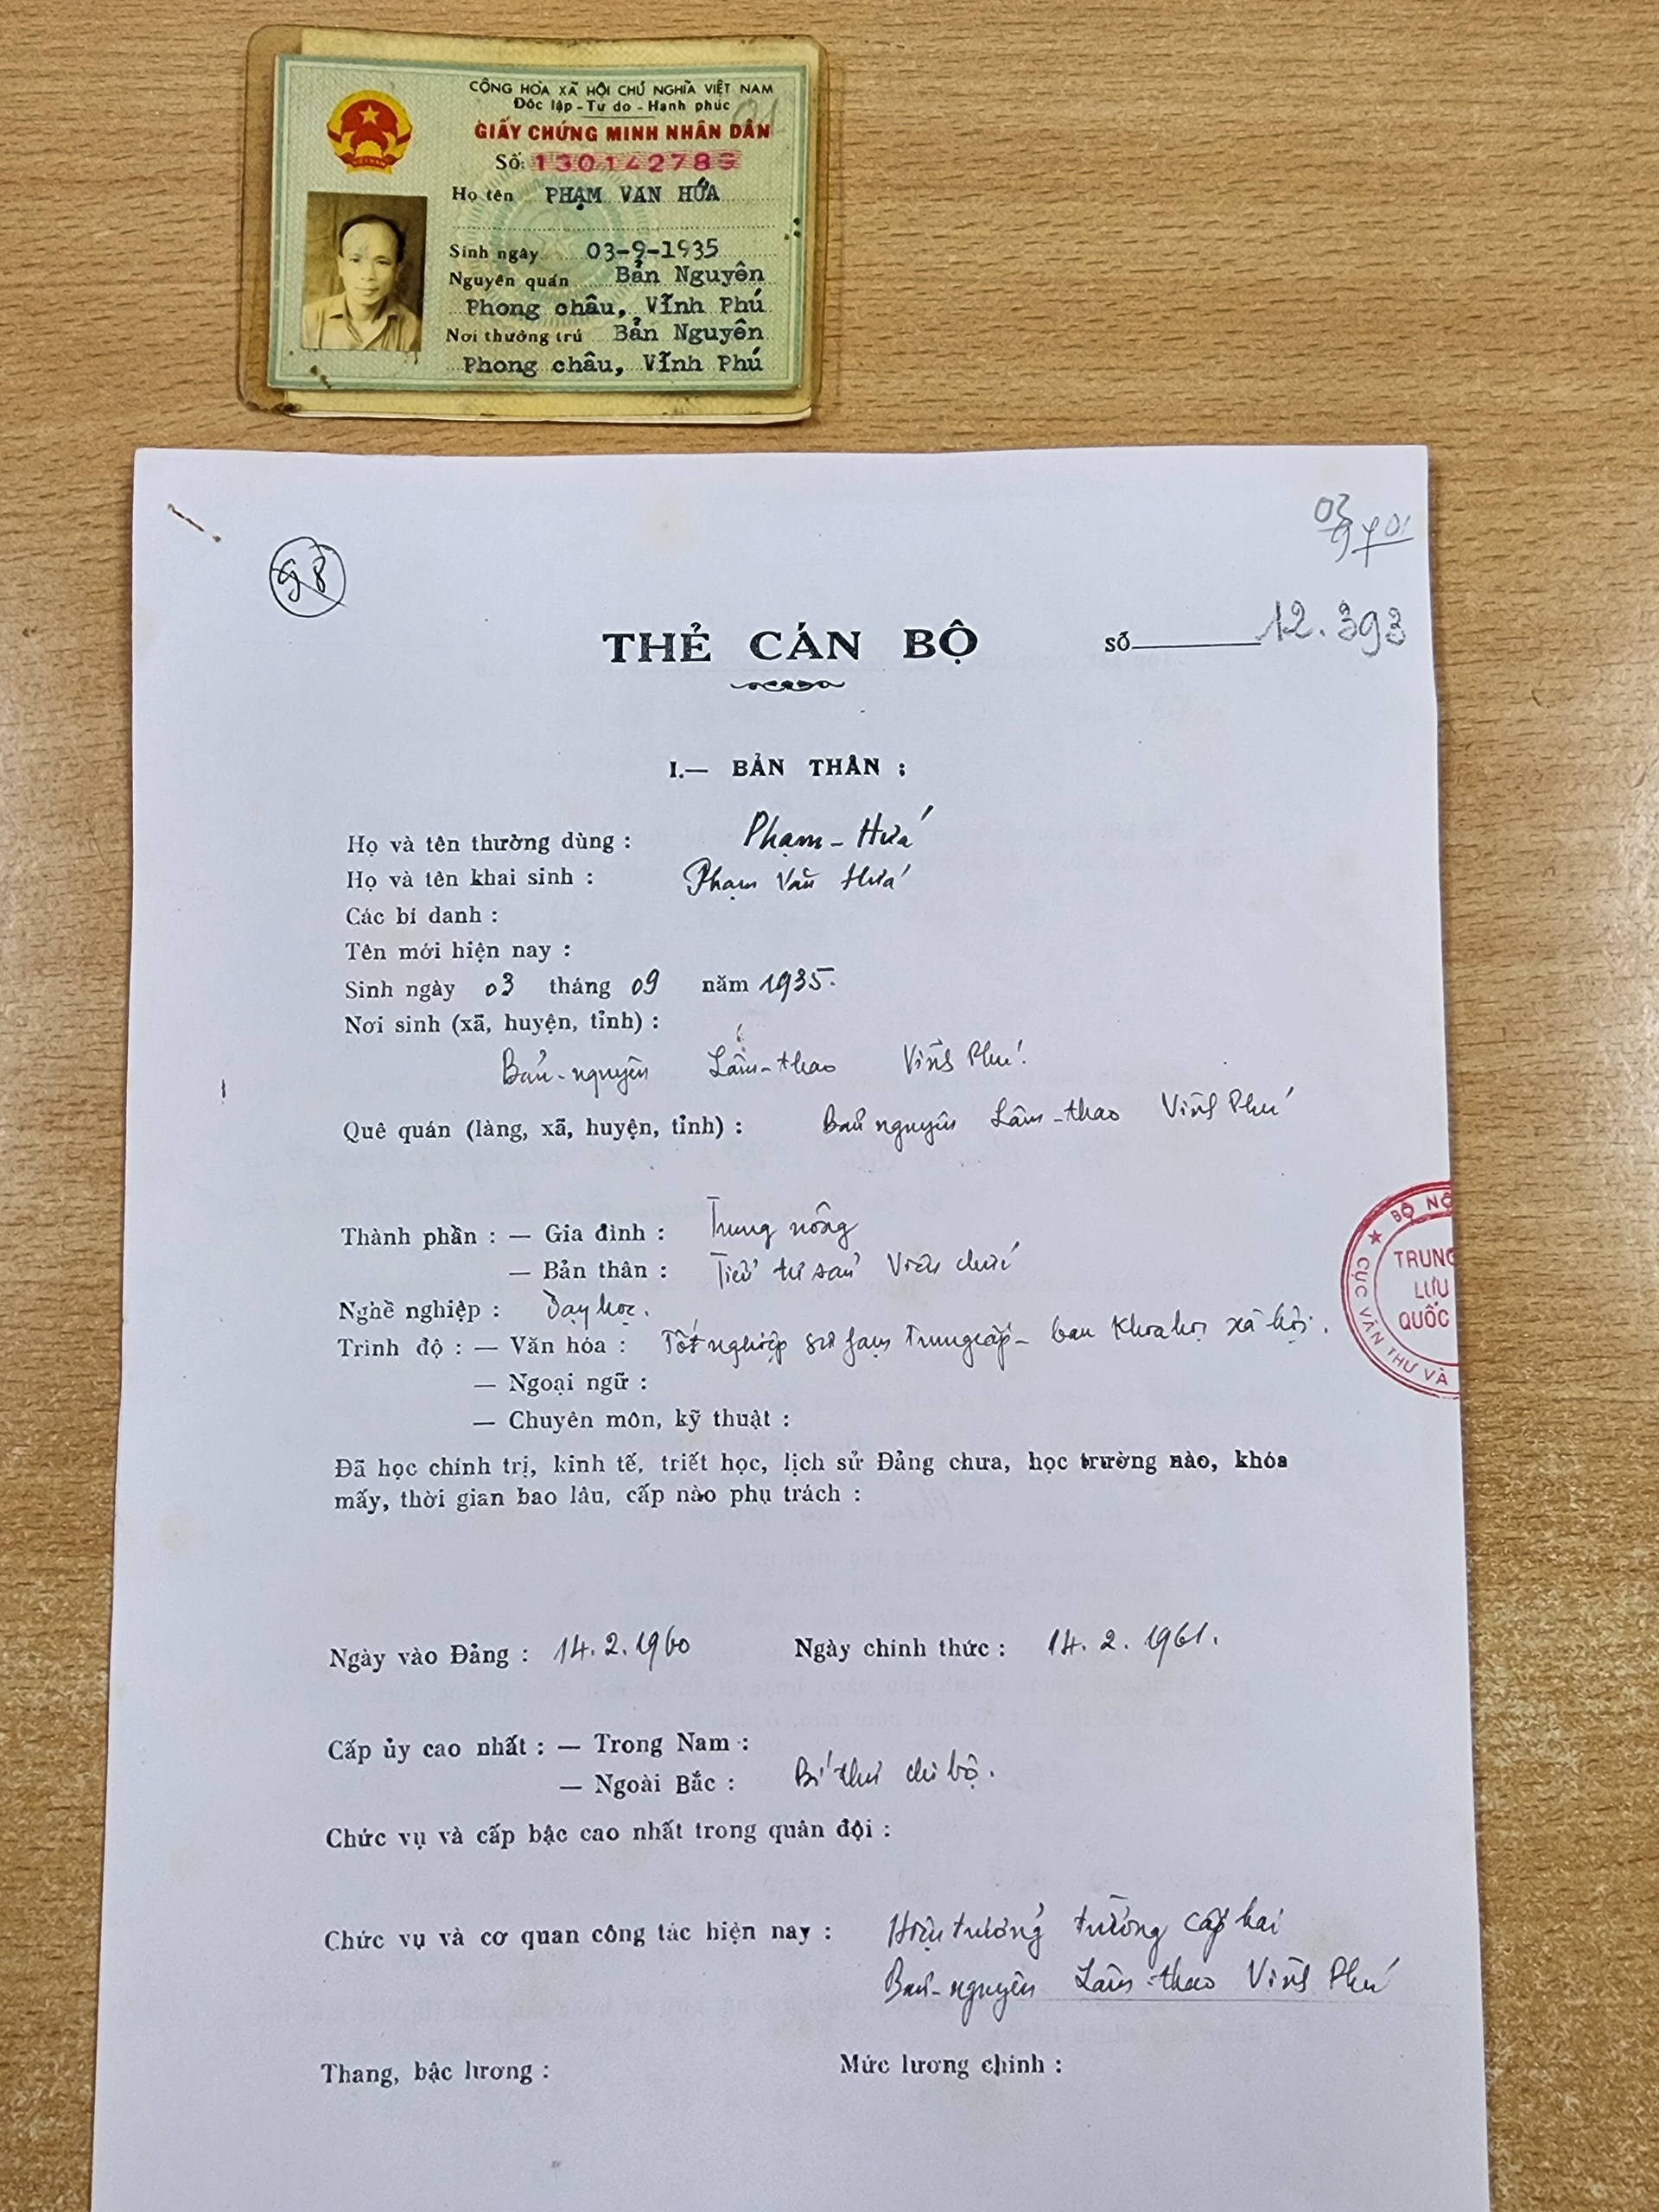 CỘNG HÒA XÃ HỘI CHỦ NGHĨA VIỆT NAM
Độc lập - Tự do - Hạnh phúc
GIẤY CHỨNG MINH NHÂN DÂN
Số: 130142789
Họ tên PHẠM VĂN HỨA
Sinh ngày 03-9-1935
Nguyên quán Bản Nguyên
Phong châu, Vĩnh Phú
Nơi thường trú Bản Nguyên
Phong châu, Vĩnh Phú
VIỆT NAM
03
98
THẺ CÁN BỘ
số 12.393
I.— BẢN THÂN :
Họ và tên thường dùng : Phạm - Hứa
Họ và tên khai sinh : Phạm Văn Hứa
Các bí danh :
Tên mới hiện nay :
Sinh ngày 03 tháng 09 năm 1935.
Nơi sinh (xã, huyện, tỉnh) :
Bản-nguyên Lâm-thao Vĩnh Phú.
Quê quán (làng, xã, huyện, tỉnh) : Bản nguyên Lâm-thao Vĩnh Phú
Thành phần : — Gia đình : Trung nông
— Bản thân : Tiểu tư sản Viên chức
Nghề nghiệp : Dạy học.
Trình độ : — Văn hóa : Tốt nghiệp sư fạm Trung cấp - ban Khoa học xã hội.
— Ngoại ngữ :
— Chuyên môn, kỹ thuật :
Đã học chính trị, kinh tế, triết học, lịch sử Đảng chưa, học trường nào, khóa
mấy, thời gian bao lâu, cấp nào phụ trách :
BỘ NỘ
TRUNG
LƯU
QUỐC
CỤC VĂN THƯ VÀ
Ngày vào Đảng : 14.2.1960 Ngày chính thức : 14.2.1961.
Cấp ủy cao nhất : — Trong Nam :
— Ngoài Bắc : Bí thư chi bộ.
Chức vụ và cấp bậc cao nhất trong quân đội :
Chức vụ và cơ quan công tác hiện nay : Hiệu trưởng trường cấp hai
Bản-nguyên Lâm-thao Vĩnh Phú
Thang, bậc lương : Mức lương chính :